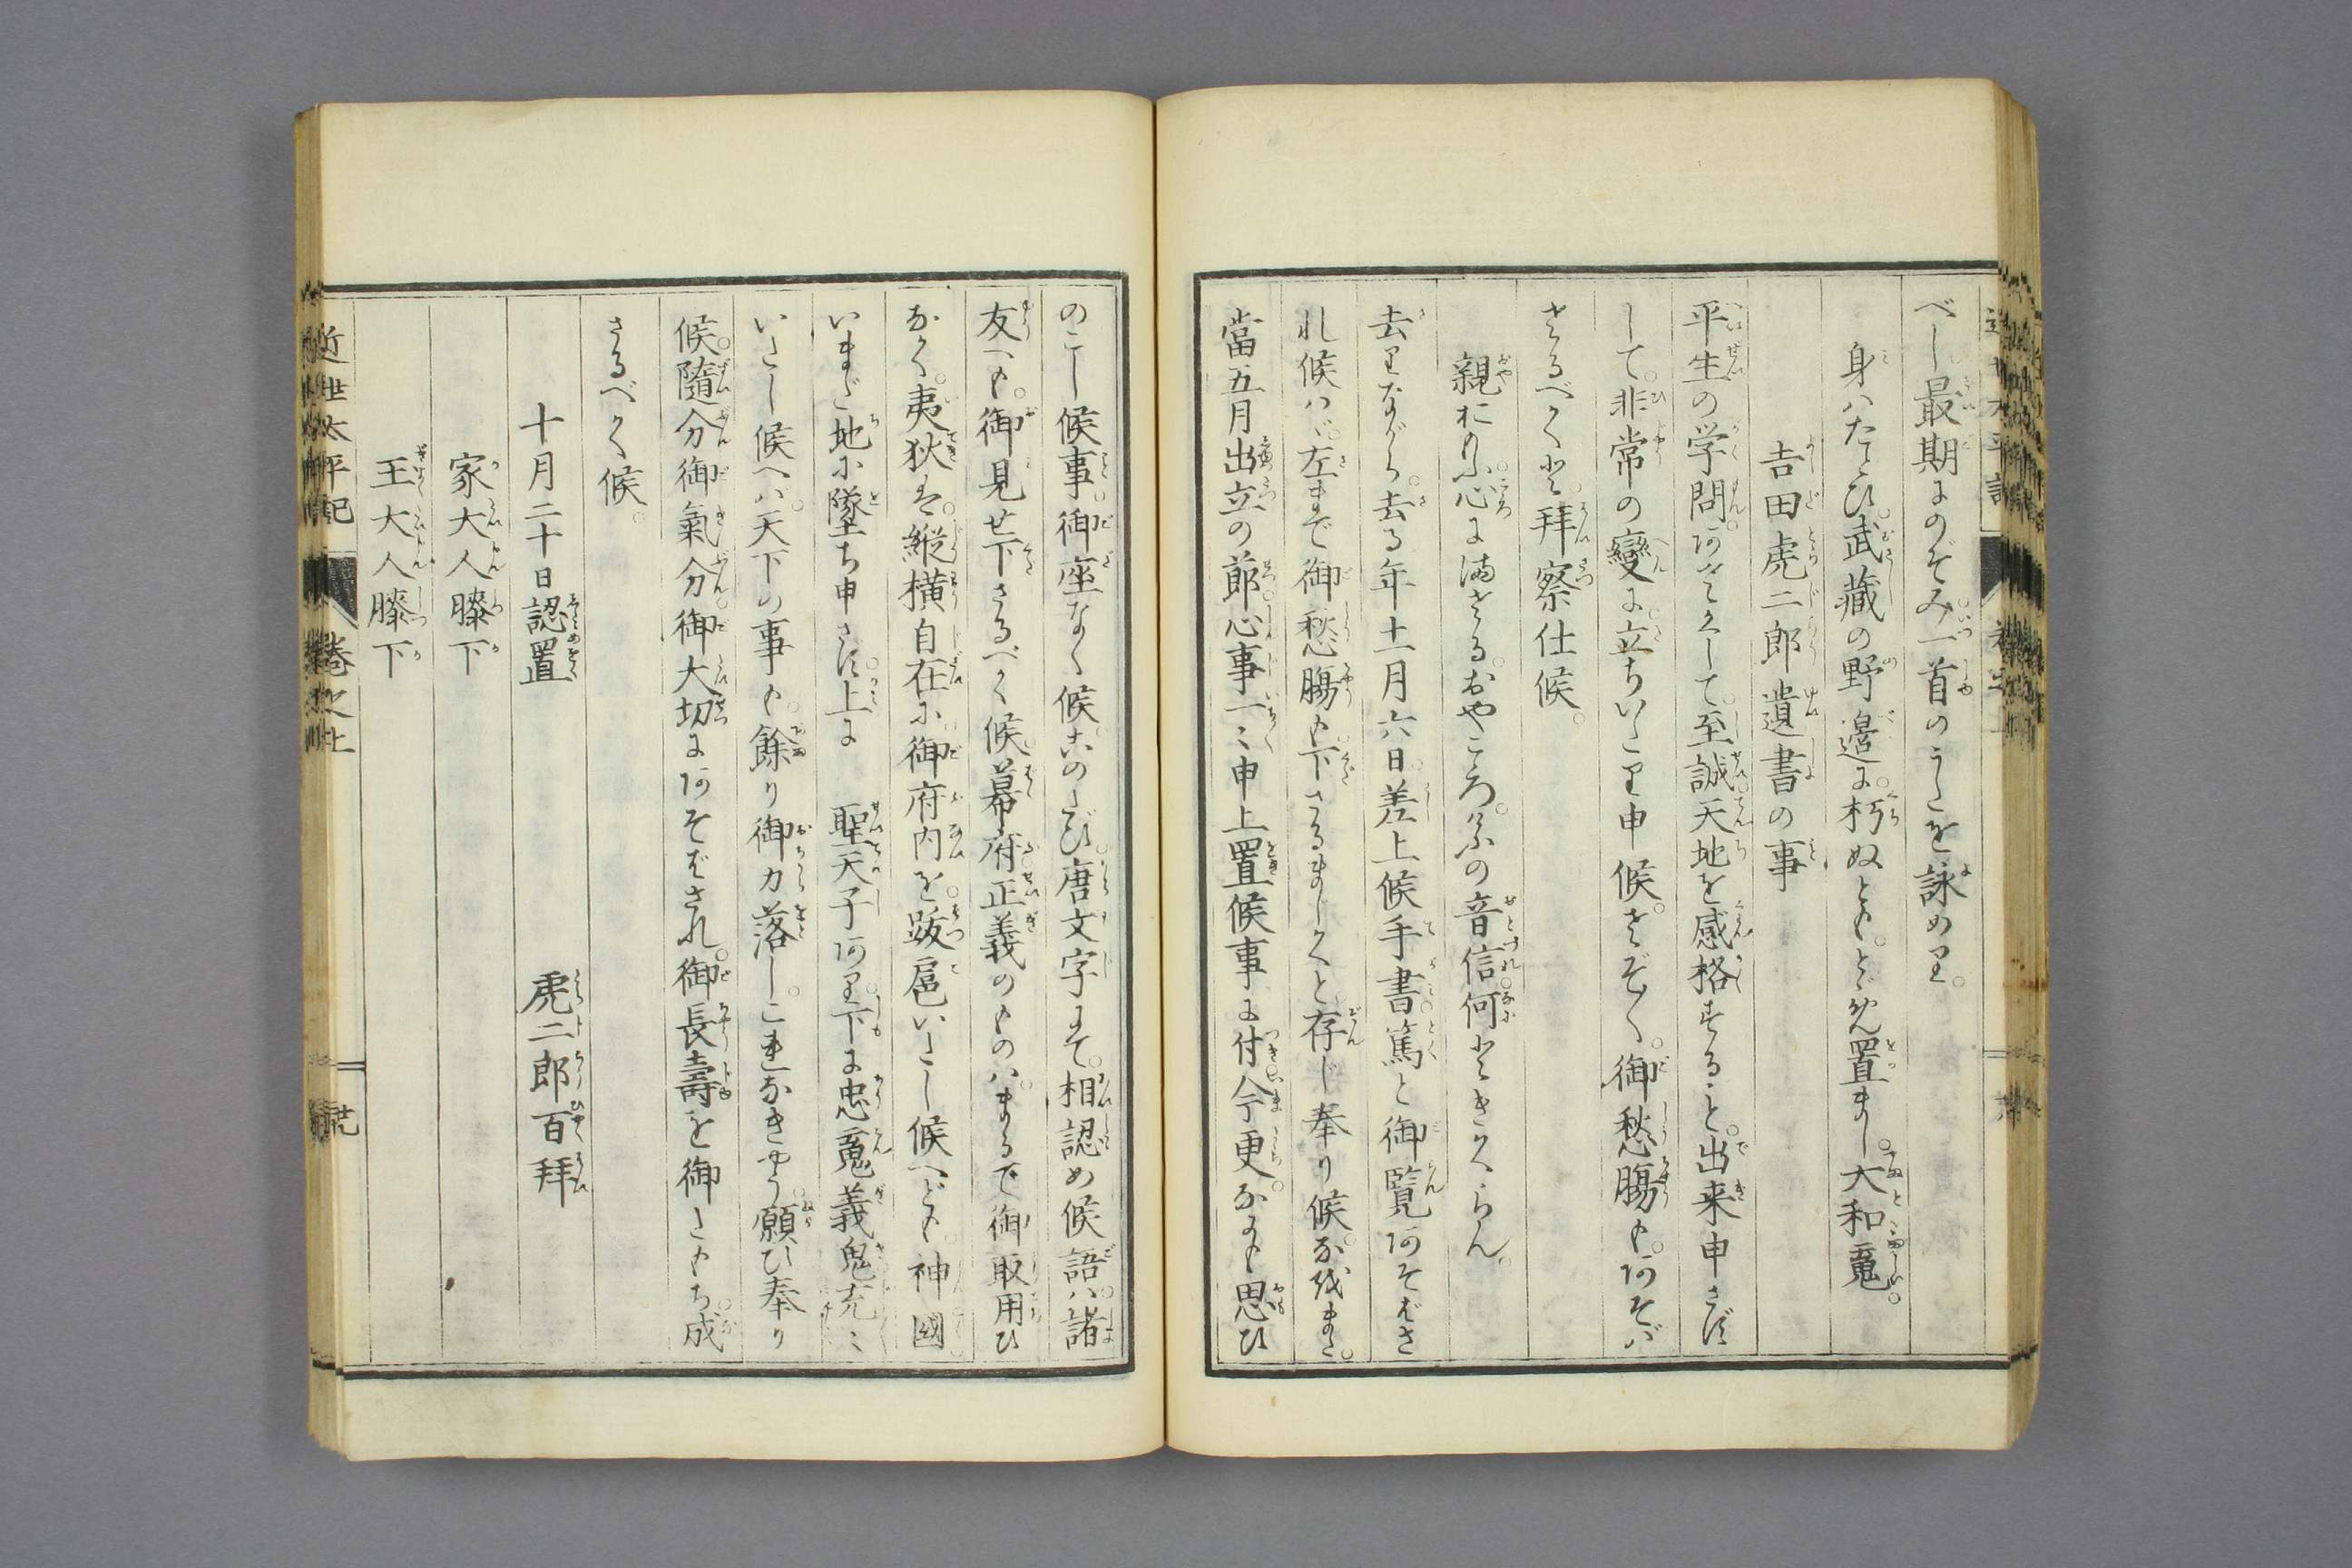 べし最期にのぞみ一首のうたを詠めり。
身ハたとひ武藏の野邉に朽ぬとも。とゞめ置まし。大和魂。
吉田虎二郎遺書の事
平生の学問。淺くして。至誠天地を感格すること。出来申さず
して。非常の變に。立ちいたり申候。さぞ〳〵。御愁膓も。あそバ
さるべくと。拜察仕候。
親おもふ心にまさる。おやこゝろ。けふの音信何ときくらん。
去りながら。去る年十一月六日。差上候手書篤と御覧あそばさ
れ候ハヾ。左まで御愁膓も下さるまじくと存じ奉り候。なほまた。
當五月出立の節心事一々申上置候事に付今更。なにも思ひ
のこし候事。御座なく候。このたび。唐文字にて。相認め候語ハ諸
友へも。御見せ下さるべく候幕府正義のものハ。まるで御取用ひ
なく。夷狄は。縱横自在に。御府内を。跋扈いたし候へども。神國
いまだ地に墜ち申さず。上に　聖天子あり。下に忠魂義鬼充々
いたし候へバ。天下の事も。餘り御力落し。これなきやう。願ひ奉り
候。隨分御氣分。御大切にあそばされ。御長壽を御たもち成
さるべく候。
十月二十日認置　虎二郎百拜
家大人膝下
玉大人膝下
近世太平記　巻之上　廿